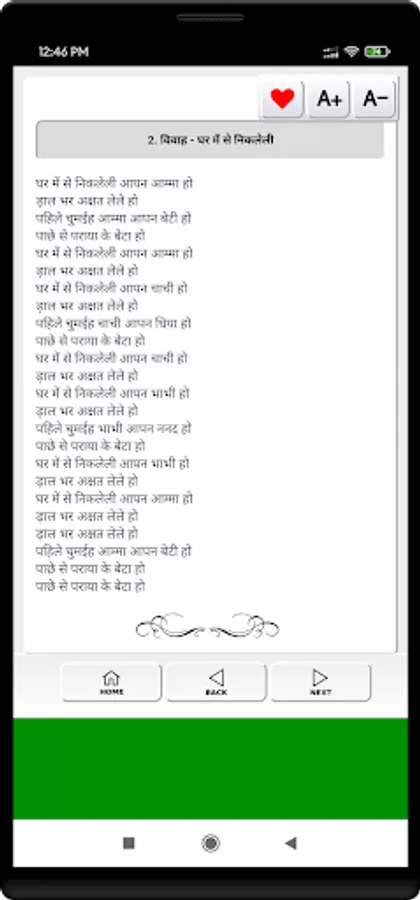 12:46 PM
A+ A-
2. विवाह - घर में से निकलेली
घर में से निकलेली आपन आम्मा हो
ड़ाल भर अक्षत लेले हो
पहिले चुमईह आम्मा आपन बेटी हो
पाछे से पराया के बेटा हो
घर में से निकलेली आपन आम्मा हो
ड़ाल भर अक्षत लेले हो
घर में से निकलेली आपन चाची हो
ड़ाल भर अक्षत लेले हो
पहिले चुमईह चाची आपन धिया हो
पाछे से पराया के बेटा हो
घर में से निकलेली आपन चाची हो
ड़ाल भर अक्षत लेले हो
घर में से निकलेली आपन भाभी हो
ड़ाल भर अक्षत लेले हो
पहिले चुमईह भाभी आपन ननद हो
पाछे से पराया के बेटा हो
घर में से निकलेली आपन भाभी हो
ड़ाल भर अक्षत लेले हो
घर में से निकलेली आपन आम्मा हो
ढ़ाल भर अक्षत लेले हो
ड़ाल भर अक्षत लेले हो
पहिले चुमईह आम्मा आपन बेटी हो
पाछे से पराया के बेटा हो
पाछे से पराया के बेटा हो
HOME BACK NEXT